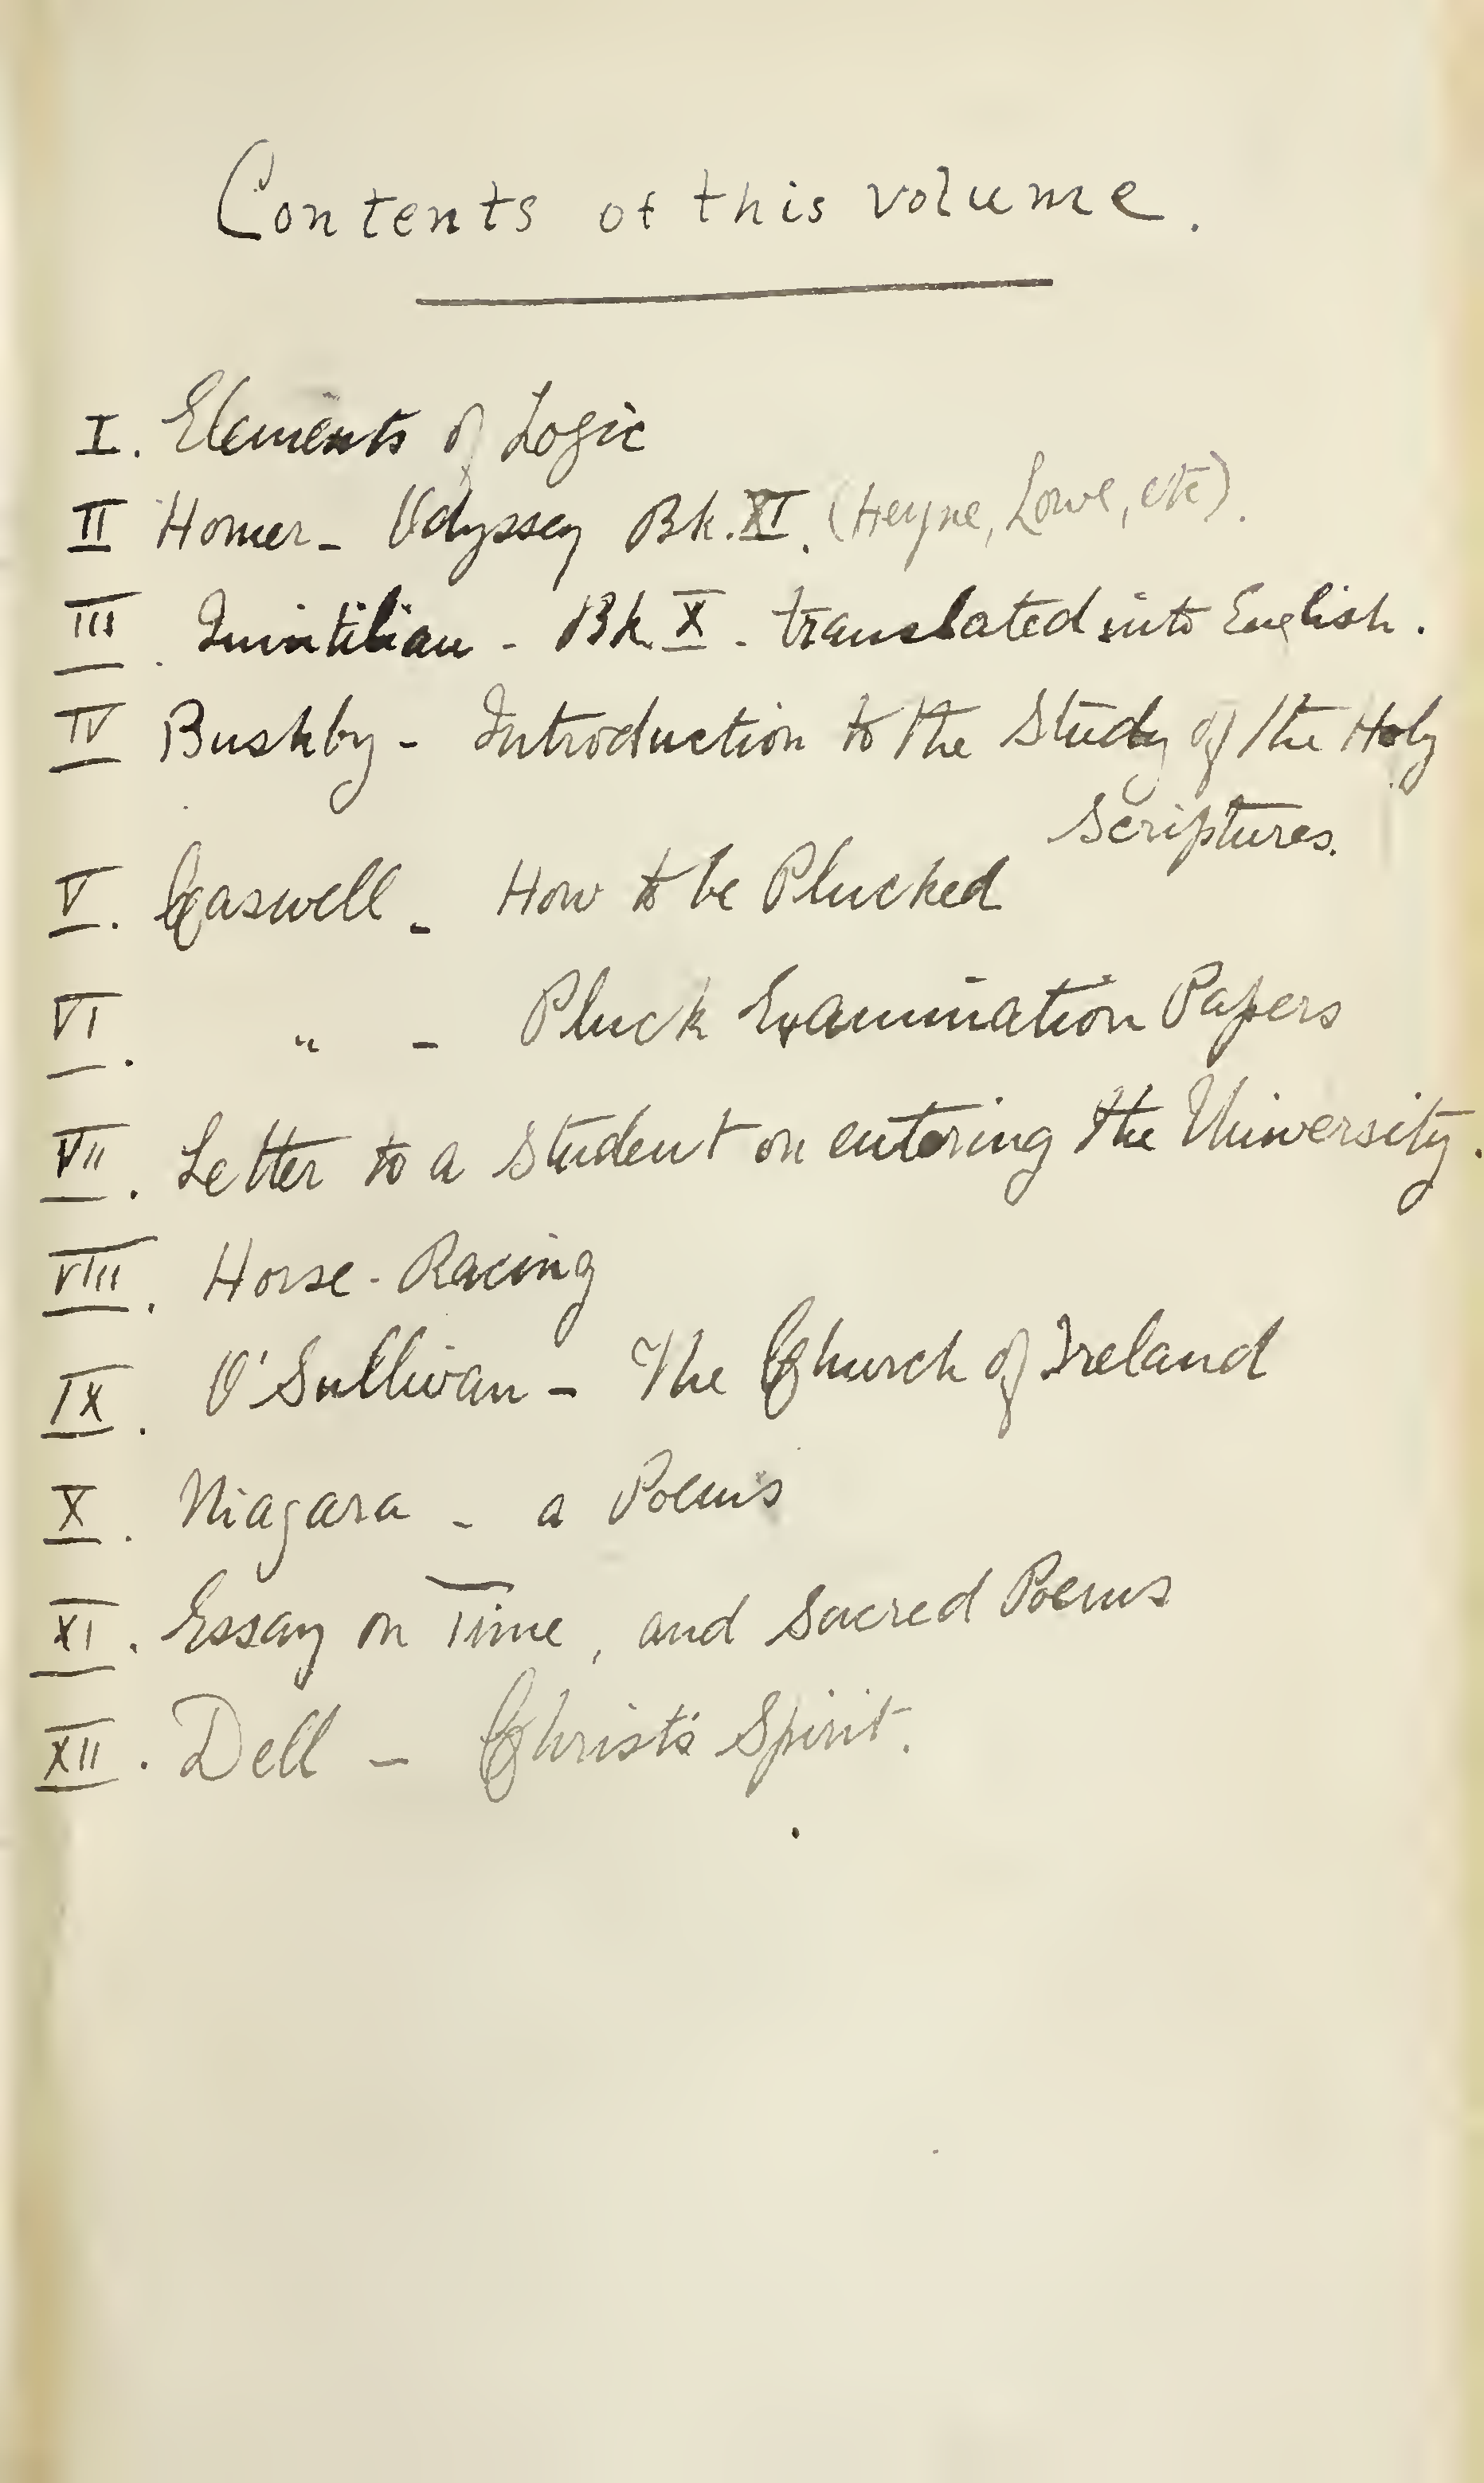 Contents of this volume.
I. Elements of Logic
II Homer - Odyssey Bk. XI. (Heyne, Lowe, etc).
III. Quintilian - Bk. X - translated into English.
IV Bushby - Introduction to the Study of the Holy
Scriptures.
V. Caswell - How to be Plucked
VI. " - Pluck Examination Papers
VII. Letter to a Student on entering the University.
VIII. Horse-Racing
IX. O'Sullivan - The Church of Ireland
X. Niagara - a Poem
XI. Essay on Time, and Sacred Poems
XII. Dell - Christ's Spirit.